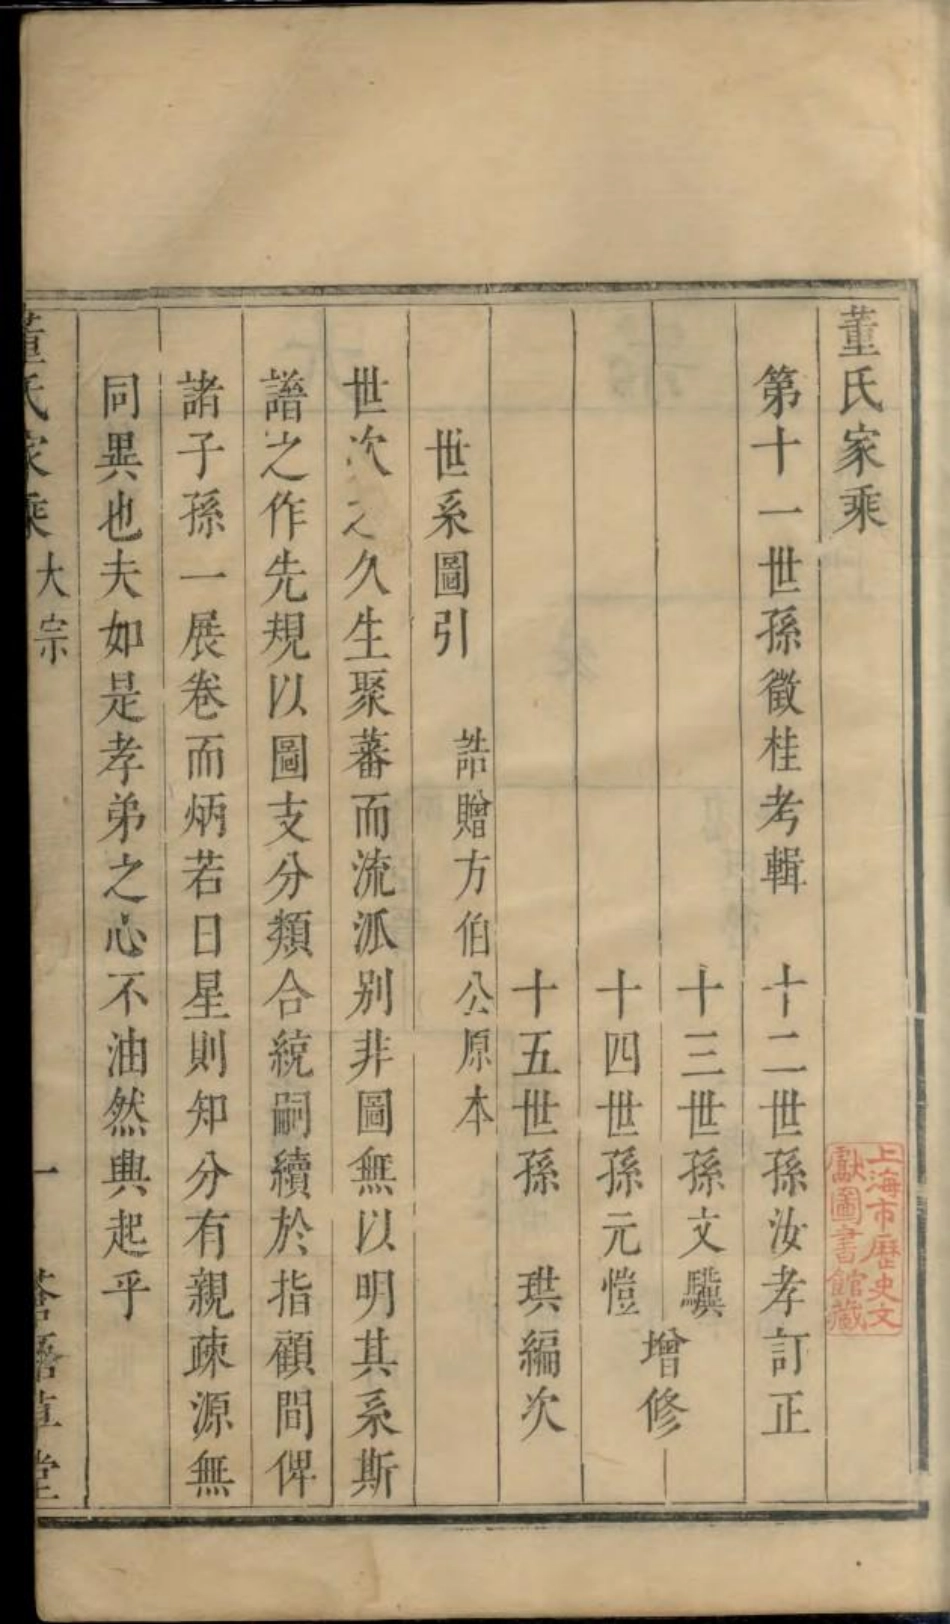 董氏家乘
上海市歷史文
獻圖書館藏
第十一世孫徵桂考輯　十二世孫汝孝訂正
十三世孫文驥
十四世孫元愷
增修
十五世孫　珙編次
世系圖引　誥贈方伯公原本
世次之久生聚蕃而流派别非圖無以明其系斯
譜之作先規以圖支分類合統嗣續於指顧間俾
諸子孫一展卷而炳若日星則知分有親疎源無
同異也夫如是孝弟之心不油然興起乎
董氏家乘　大宗　一　草堂